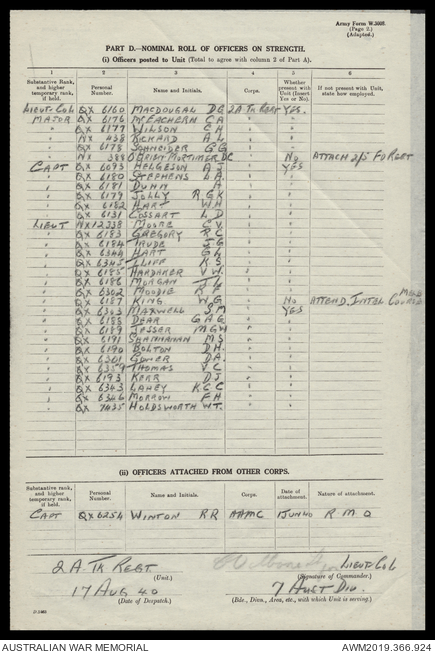 Army Form W.3008.
(Page 2.)
(Adapted.)
PART D.—NOMINAL ROLL OF OFFICERS ON STRENGTH.
(i) Officers posted to Unit (Total to agree with column 2 of Part A).
1 2 3 4 5 6
Substantive Rank, and higher temporary rank, if held. Personal Number. Name and Initials. Corps. Whether present with Unit (Insert Yes or No). If not present with Unit, state how employed.
LIEUT-COL QX 6160 MACDOUGAL D E 2 A TK REGT YES.
MAJOR QX 6176 McEACHERN C A " "
" QX 6177 WILSON C H " "
" NX 438 RICKARD A L " "
" QX 6178 SCHNEIDER G G " "
" NX 388 O'BRIEN MORTIMER DC " NO ATTACH 2/5 FD REGT
CAPT QX 6093 HELGESON A J " YES
" QX 6180 STEPHENS L A. " "
" QX 6181 DUNN A " "
" QX 6179 JOLLY R G K " "
" QX 6182 HART W H " "
" QX 6131 COSSART L D " "
LIEUT NX 12338 MOORE C V. " "
" QX 6183 GREGORY R C " "
" QX 6184 TRUDE J G " "
" QX 6344 HART G L " "
" QX 6345 ILIFF K S. " "
" QX 6185 HARDAKER V W. " "
" QX 6186 MORGAN " "
" QX 6302 MOODIE R " "
" QX 6187 KING W G " NO ATTEND. INTEL COURSE
" QX 6303 MAXWELL S M " YES
" QX 6188 DEAR G A G " "
" QX 6189 JESSER M G W " "
" QX 6191 SHANAHAN M S " "
" QX 6190 BOLTON D H. " "
" QX 6301 GOWER D A. " "
" QX 6359 THOMAS V C " "
" QX 6193 KERR D J " "
" QX 6343 LAHEY K C C " "
" QX 6346 MORROW F H " "
" QX 7435 HOLDSWORTH W T. " "
(ii) OFFICERS ATTACHED FROM OTHER CORPS.
Substantive rank, and higher temporary rank, if held. Personal Number. Name and Initials. Corps. Date of attachment. Nature of attachment.
CAPT QX 6254 WINTON R R AAMC 1 JUN 40 R M O
2 A. TK REGT LIEUT-COL
(Unit.) (Signature of Commander.)
17 AUG 40 7 AUST DIV.
(Date of Despatch.) (Bde., Divn., Area, etc., with which Unit is serving.)
AUSTRALIAN WAR MEMORIAL AWM2019.366.924